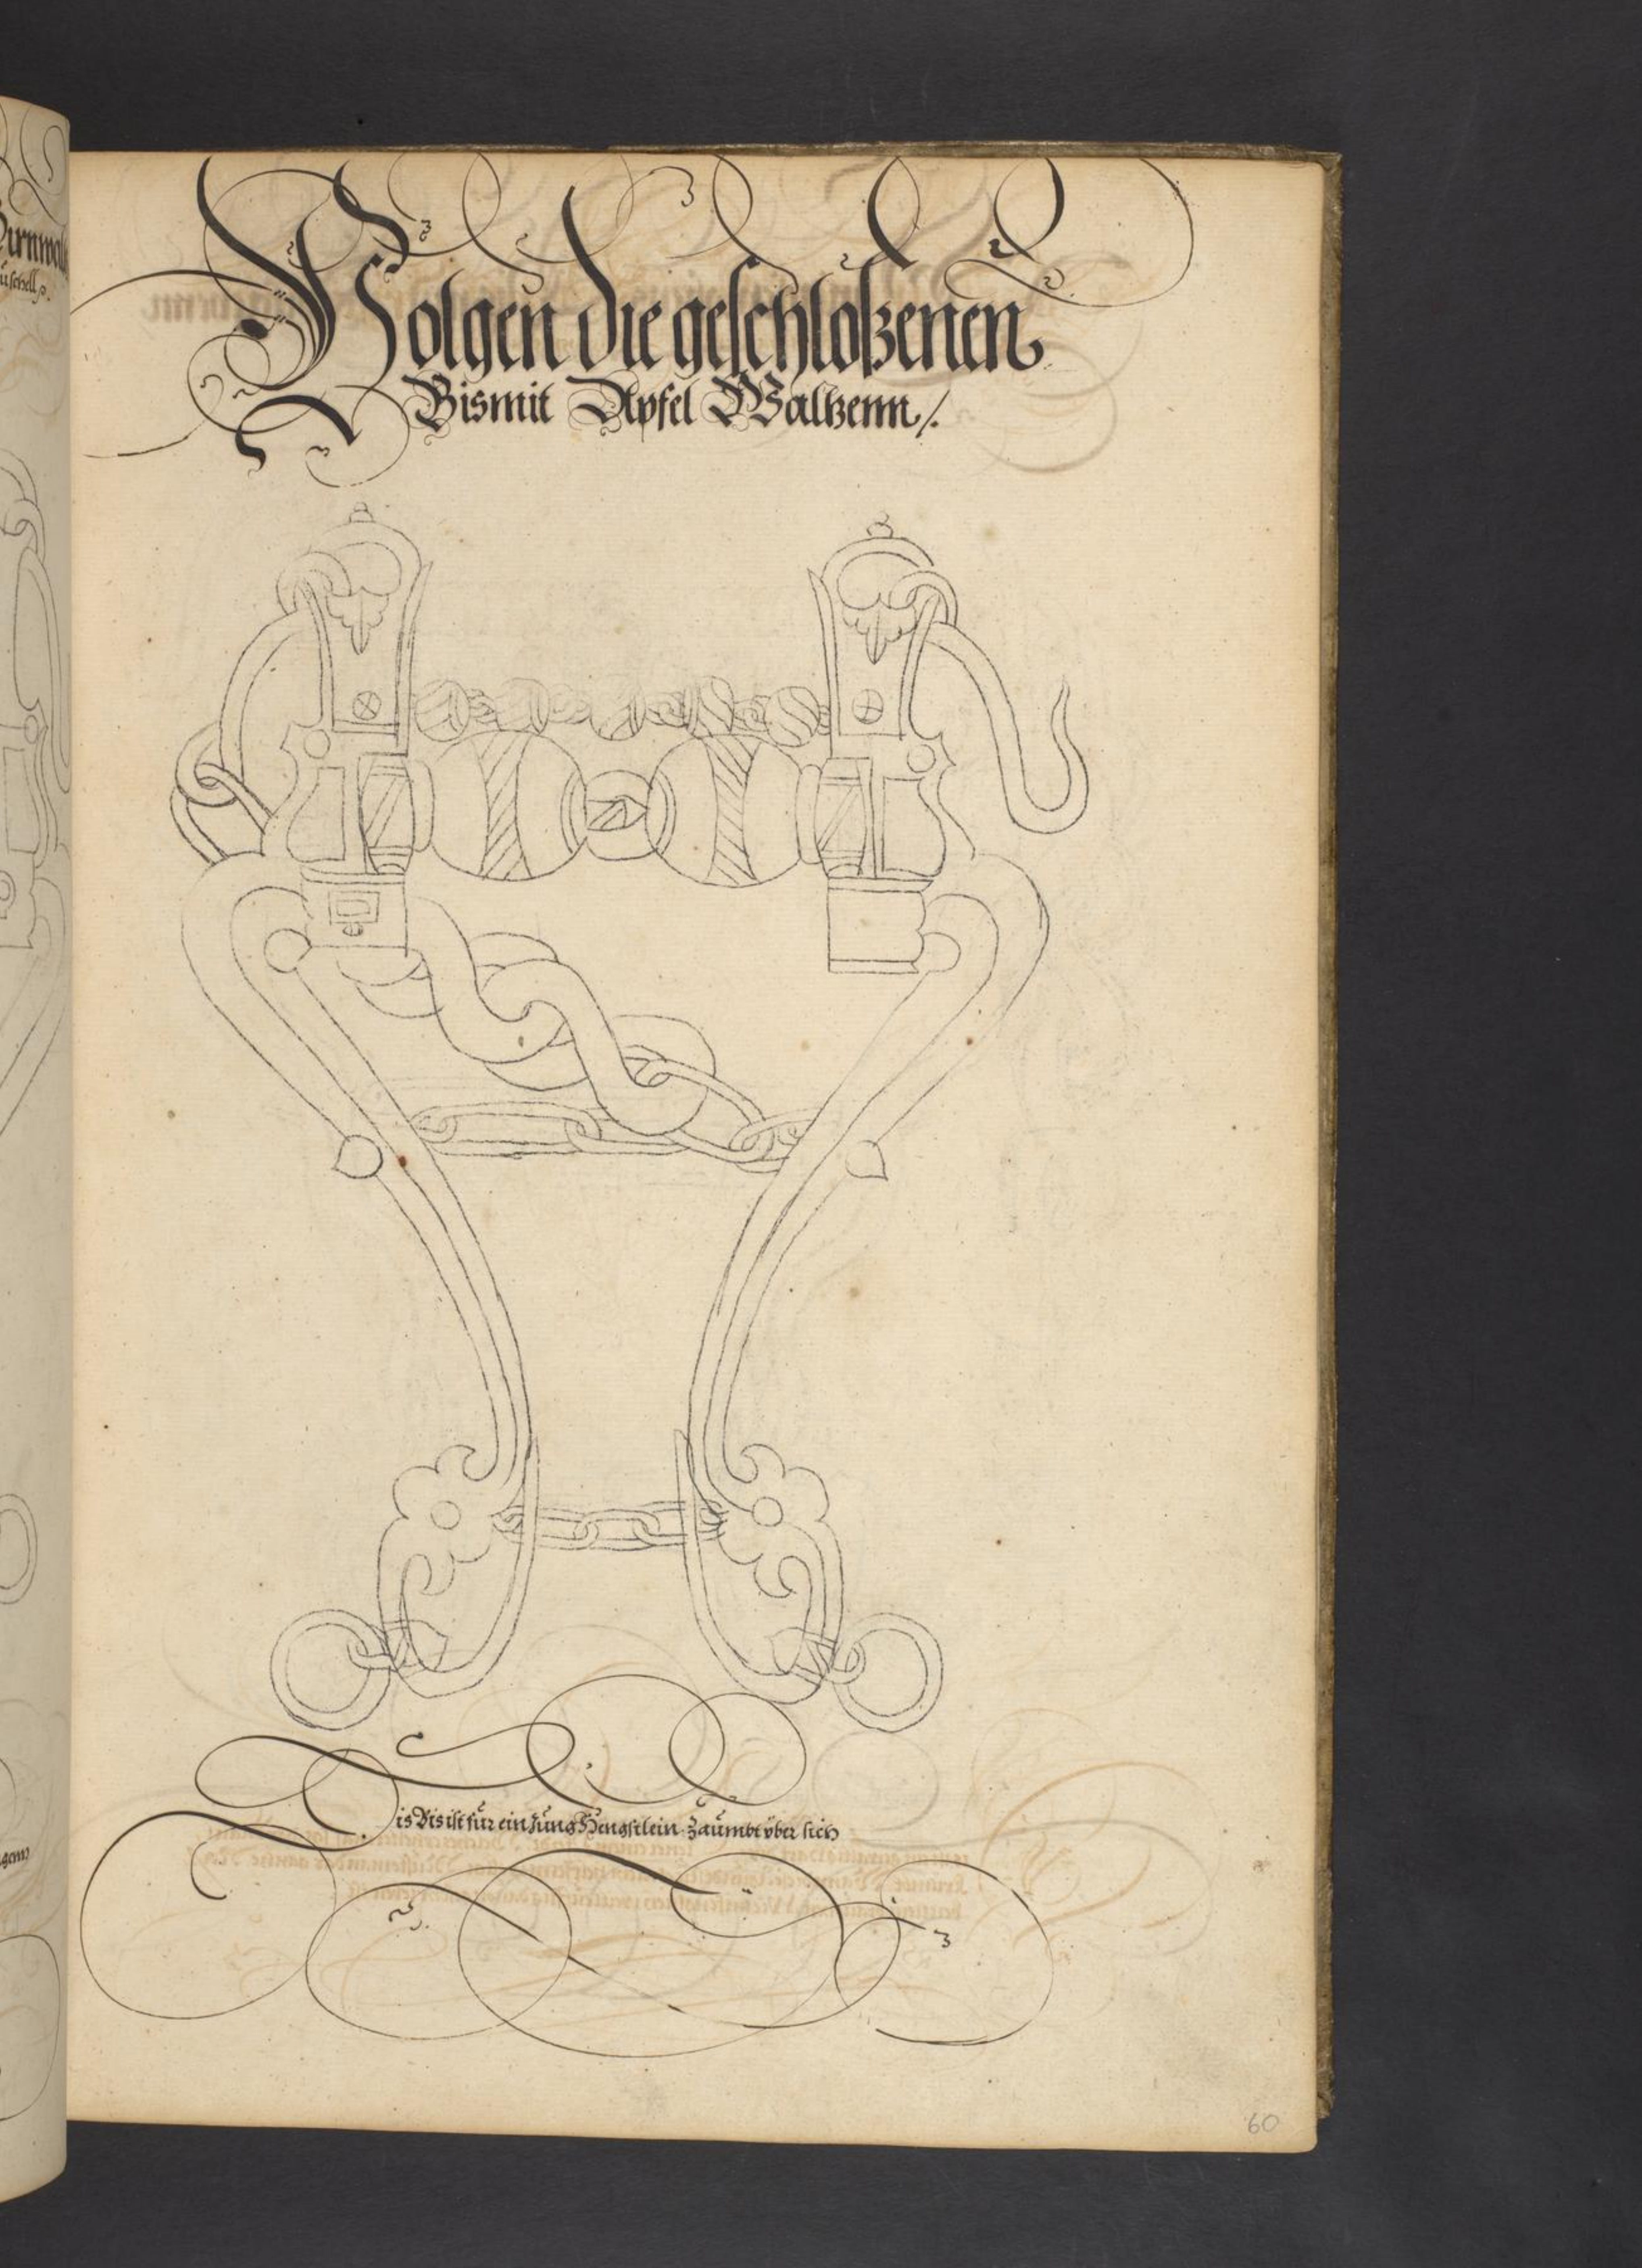 Folgen die geschloßenen
Bis mit Apfel Waltzenn /.
Dis Bis ist für ein Jung Hengstlein Zaumbt über sich
60